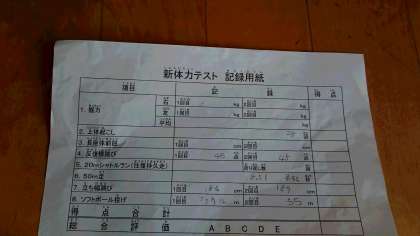 新体力テスト 記録用紙
項目 記 録 得 点
1. 握力 右 1回目 kg 2回目 kg
左 1回目 kg 2回目 kg
平均 kg
2. 上体起こし 回
3. 長座体前屈 1回目 cm 2回目 cm
4. 反復横跳び 1回目 45 点 2回目 45 点
5. 20mシャトルラン(往復持久走) 折り返し数 回
6. 50m走 秒
7. 立ち幅跳び 1回目 186 cm 2回目 189 cm
8. ソフトボール投げ 1回目 m 2回目 35 m
得 点 合 計
総 合 評 価 A B C D E